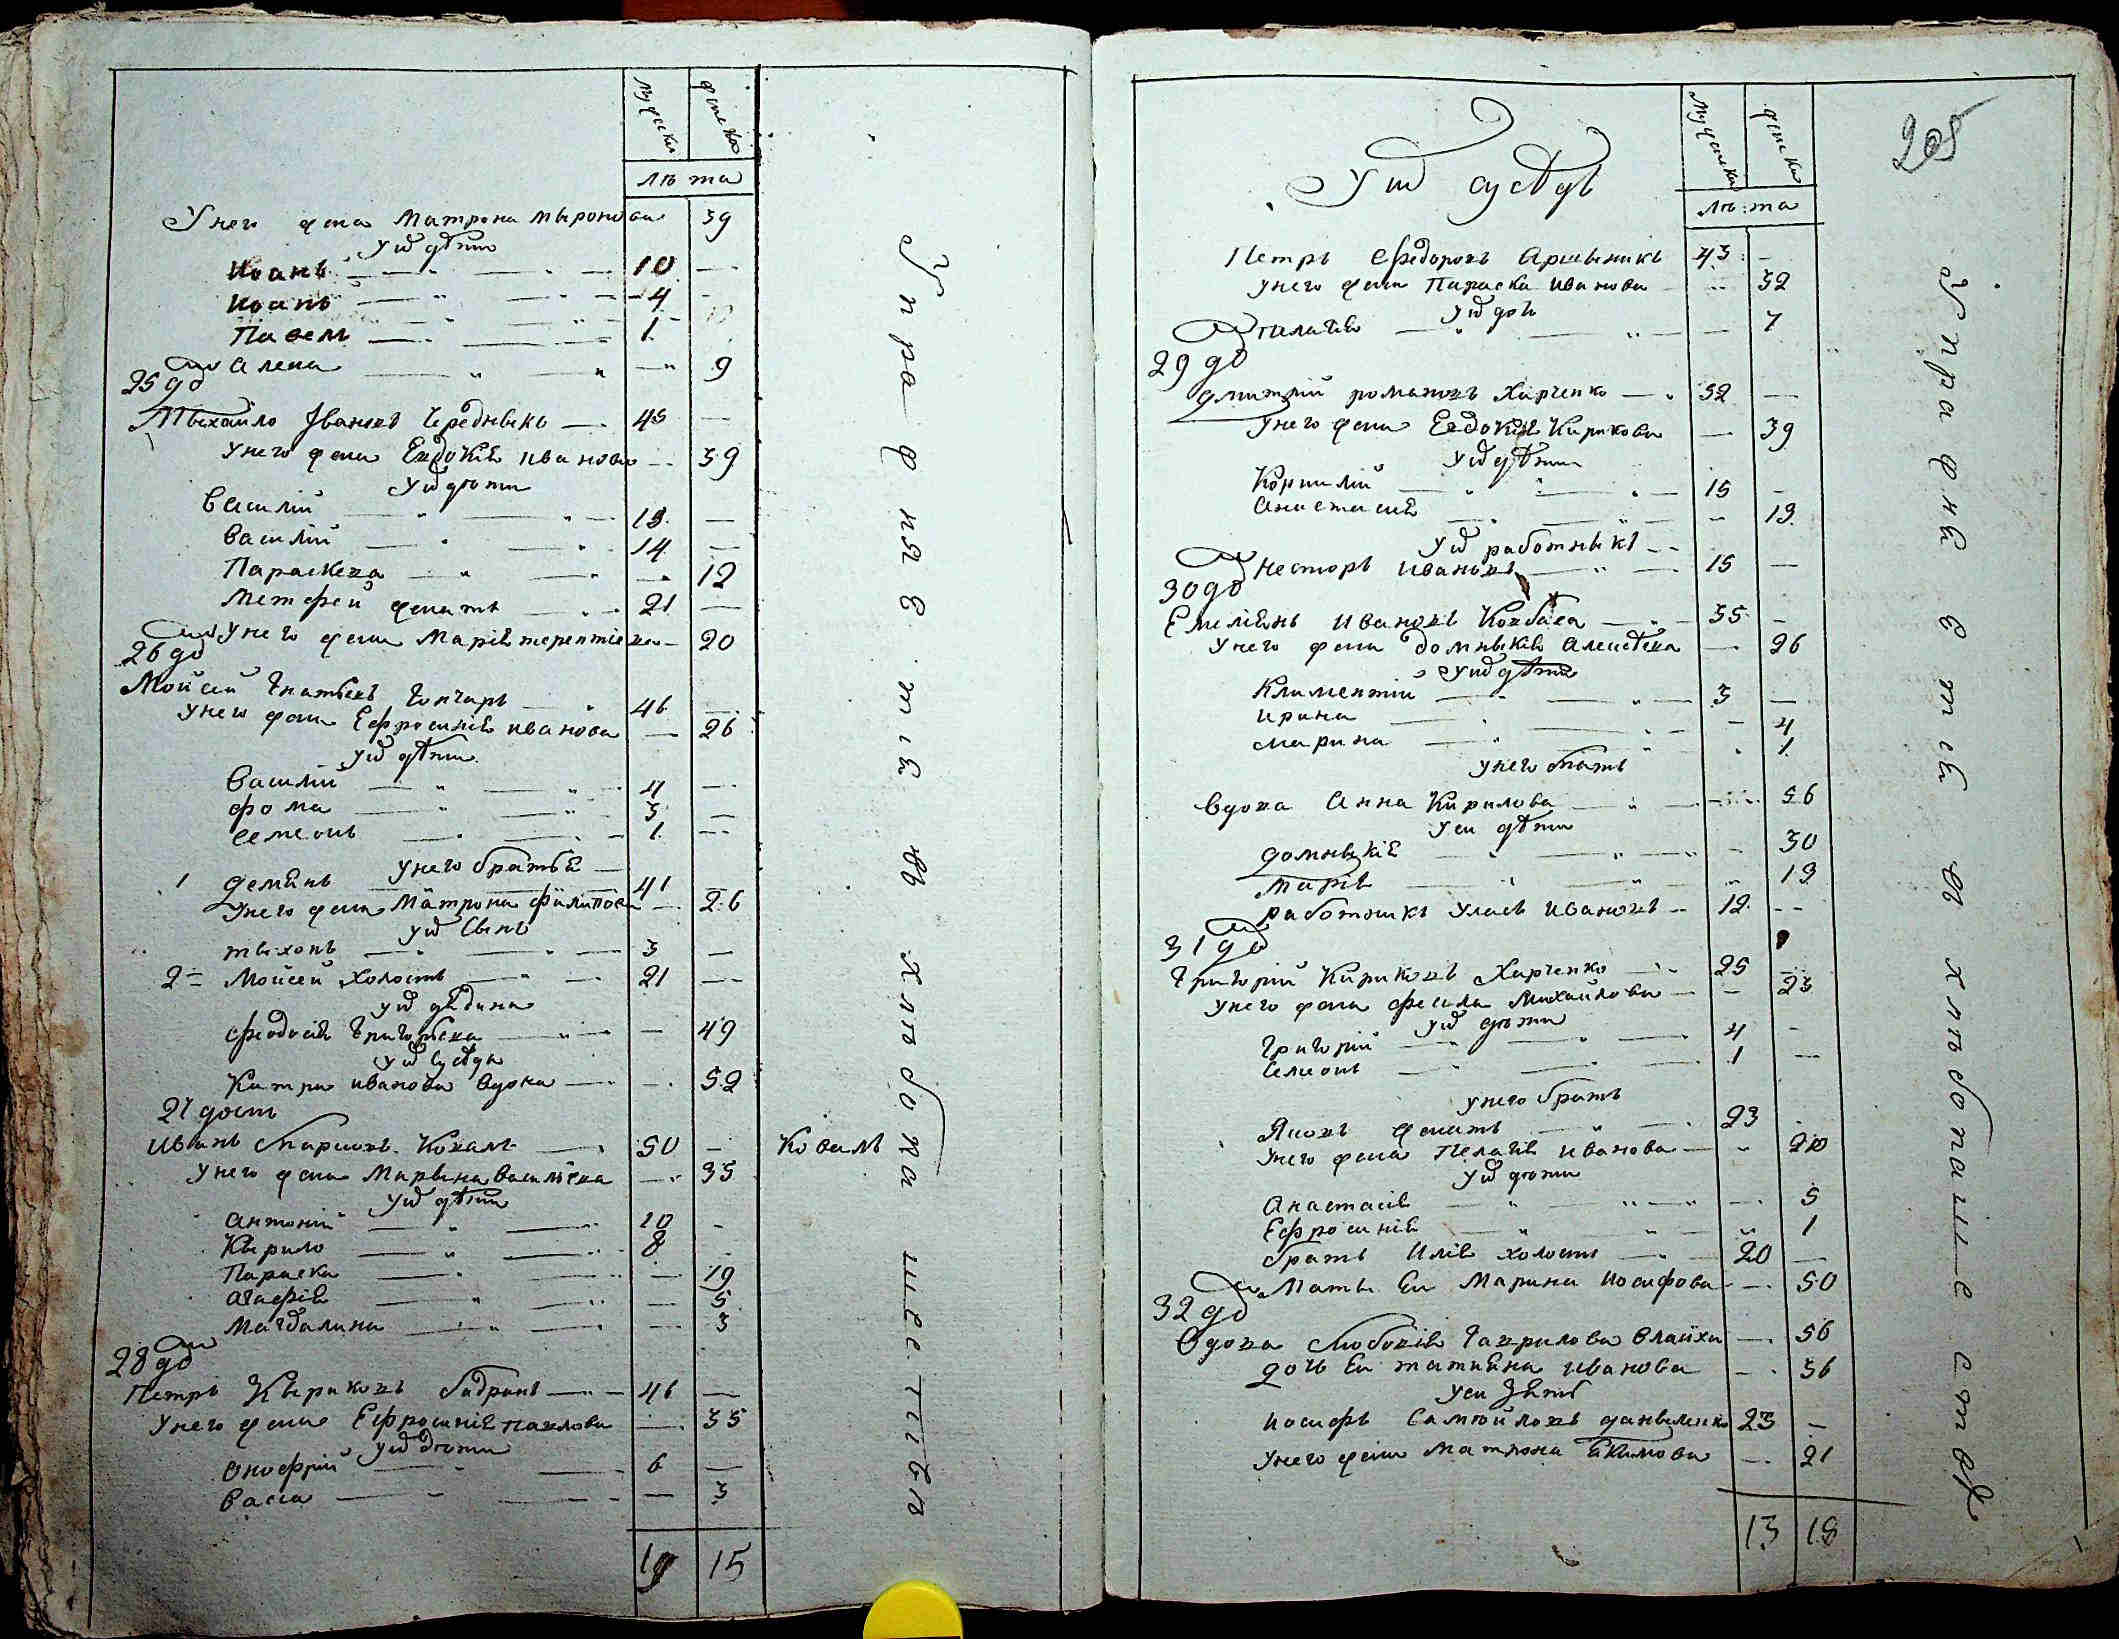 мужеска
женска
лѣта
У него жена Матрона Миронова 39
У их дѣти
Иоанъ 10
Иоанъ 4
Павелъ 1
Алена 9
25 дво
Мыхайло Івановъ Чередныкъ 45
У него жена Евдокия Иванова 39
У их дѣти
Василій 19
Василій 14
Параскева 12
Метофей женатъ 21
У него жена Марія терентіева 20
26 дво
Мойсей Игнатьевъ Гончаръ 46
У него жена Ефросинія Иванова 26
У их дѣти
Василій 4
Фома 3
Семеонъ 1
У него братья
1 Деміянъ 41
У него жена Матрона Филипова 26
У их сынъ
Тыхонъ 3
2 Мойсей холостъ 21
У их дядина
Феодосія Григорьева 49
У их сусѣда
Иванова вдова 52
27 дворъ
Иванъ Марковъ Коваль 50
Коваль
У него жена Марына Васильева 35
У их дѣти
Антоній 10
Кырило 8
Параска 19
Агафія 5
Магдалина 3
28 дво
Петръ Кыриковъ 46
У него жена Ефросинія Павлова 35
У их дѣти
Онофрій 6
Васса 3
19 15
Упражняется въ хлебопашестве
205
мужеска
женска
лѣта
У их сусѣдъ
Петръ Федоровъ 43
У него жена Параска Иванова 32
У их дочь
Пелагія 7
29 дво
Дмитрій Романовъ Харченко 52
У него жена Евдокія Кирикова 39
У их дѣти
Корнилій 15
Анастасія 19
У их работныкъ
Несторъ Ивановъ 15
30 дво
Емеліянъ Ивановъ Ковбаса 35
У него жена Домныкія Алексѣева 26
У их дѣти
Климентій 3
Ирина 4
Марина 1
У него мать
Вдова Анна Кирилова 56
У еи дѣти
Домныкія 30
Марія 19
Работникъ Уласъ Ивановъ 12
31 дво
Григорій Кириковъ Харченко 25
У него жена Фесила Михайлова 23
У их дѣти
Григорій 4
Семеонъ 1
У него братъ
Яковъ женатъ 23
У него жена Пелагія Иванова 20
У их дѣти
Анастасія 5
Ефросинія 1
Братъ Илія холостъ 20
Мать еи Марина Иосифова 50
32 дво
Вдова Любовія Гаврилова 56
Дочь еи Татияна Иванова 36
У еи зять
Иосифъ Самойловъ Даныленко 23
У него жена Матрона Екимова 21
13 18
Упражняется въ хлебопашестве